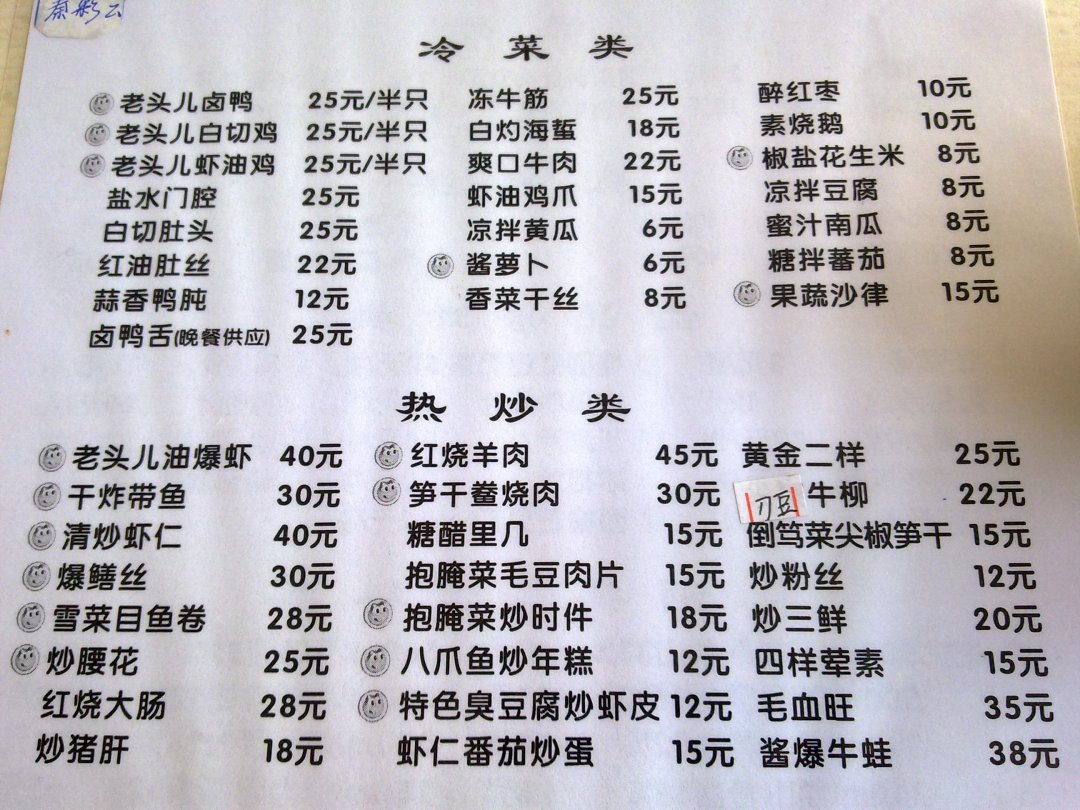 秦彩云
冷菜类
老头儿卤鸭 25元/半只 冻牛筋 25元 醉红枣 10元
老头儿白切鸡 25元/半只 白灼海蜇 18元 素烧鹅 10元
老头儿虾油鸡 25元/半只 爽口牛肉 22元 椒盐花生米 8元
盐水门腔 25元 虾油鸡爪 15元 凉拌豆腐 8元
白切肚头 25元 凉拌黄瓜 6元 蜜汁南瓜 8元
红油肚丝 22元 酱萝卜 6元 糖拌蕃茄 8元
蒜香鸭肫 12元 香菜干丝 8元 果蔬沙律 15元
卤鸭舌(晚餐供应) 25元
热炒类
老头儿油爆虾 40元 红烧羊肉 45元 黄金二样 25元
干炸带鱼 30元 笋干鲞烧肉 30元 刀豆牛柳 22元
清炒虾仁 40元 糖醋里几 15元 倒笃菜尖椒笋干 15元
爆鳝丝 30元 抱腌菜毛豆肉片 15元 炒粉丝 12元
雪菜目鱼卷 28元 抱腌菜炒时件 18元 炒三鲜 20元
炒腰花 25元 八爪鱼炒年糕 12元 四样荤素 15元
红烧大肠 28元 特色臭豆腐炒虾皮 12元 毛血旺 35元
炒猪肝 18元 虾仁番茄炒蛋 15元 酱爆牛蛙 38元